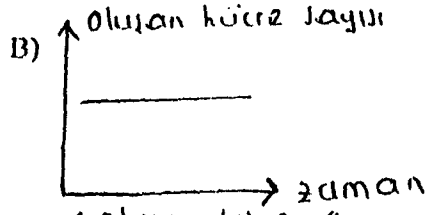 Oluşan hücre sayısı
B)
zaman